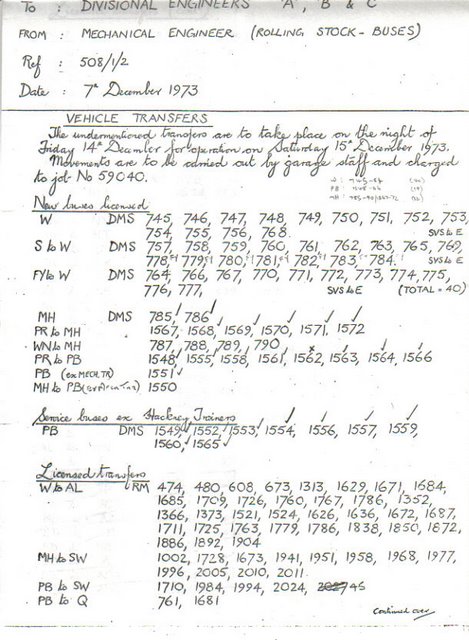 To : DIVISIONAL ENGINEERS 'A', 'B' & C'
FROM : MECHANICAL ENGINEER (ROLLING STOCK - BUSES)
Ref : 508/1/2
Date : 7th December 1973
VEHICLE TRANSFERS
The undermentioned transfers are to take place on the night of
Friday 14th December for operation on Saturday 15th December 1973.
Movements are to be carried out by garage staff and charged
to job No 59040.
New buses licensed
W DMS 745, 746, 747, 748, 749, 750, 751, 752, 753,
754, 755, 756, 768. SVS to E
S to W DMS 757, 758, 759, 760, 761, 762, 763, 765, 769,
778, 779, 780, 781, 782, 783, 784. SVS to E
FY to W DMS 764, 766, 767, 770, 771, 772, 773, 774, 775,
776, 777, SVS to E (TOTAL = 40)
MH DMS 785, 786
PR to MH 1567, 1568, 1569, 1570, 1571, 1572
WN to MH 787, 788, 789, 790
PR to PB 1548, 1555, 1558, 1561, 1562, 1563, 1564, 1566
PB (ex MECH.TR) 1551
MH to PB 1550
Service buses ex Stackrey Trainers
PB DMS 1549, 1552, 1553, 1554, 1556, 1557, 1559,
1560, 1565
Licensed transfers
W to AL RM 474, 480, 608, 673, 1313, 1629, 1671, 1684,
1685, 1709, 1726, 1760, 1767, 1786, 1352,
1366, 1373, 1521, 1524, 1626, 1636, 1672, 1687,
1711, 1725, 1763, 1779, 1786, 1838, 1850, 1872,
1886, 1892, 1904
MH to SW 1002, 1728, 1673, 1941, 1951, 1958, 1968, 1977,
1996, 2005, 2010, 2011
PB to SW 1710, 1984, 1994, 2024,
PB to Q 761, 1681
Continued over